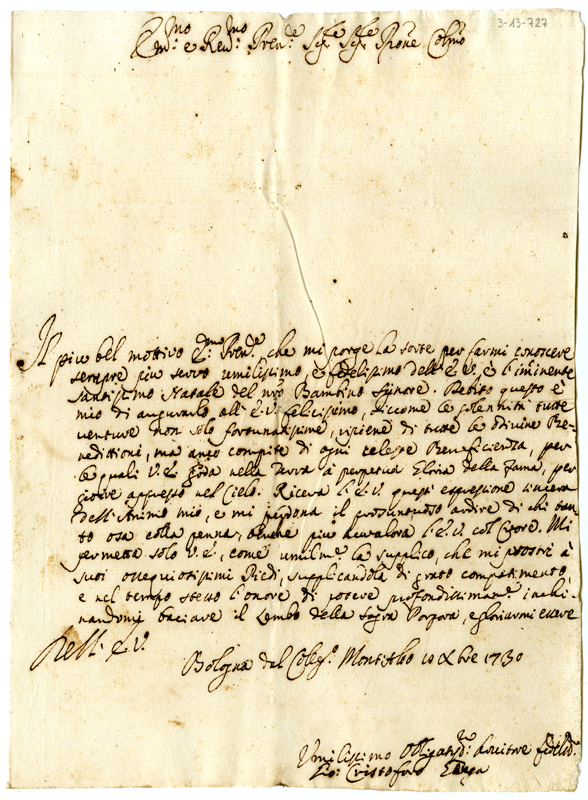 3-13-727
Em.mo e Rev.mo Pren.e Sig.e Sig.e Pṙone Colmo
Il piu bel motivo E.mo Pren.e che mi porge la sorte per farmi conoscere
sempre piu servo umilissimo, e fedelissimo dell' E.V. è l'iminente
Santissimo Natale del nro Bambino Signore. Debito questo è
mio di augurarlo all' E.V. felicissimo, siccome le solennità tutte
venture non solo fortunatissime, ripiene di tutte le Divine Be-
nedittioni, ma anco compite di ogni celeste Beneficienza, per
le quali V.E. goda nella Terra à perpetua Gloria della fama, per
gioire appresso nel Cielo. Riceva l'E.V. questi espressione sincera
dell'Animo mio, e mi perdona il prosuntuoso ardire di chi tan-
to osa colla penna, piu avvalora l'E.V. col Cuore. Mi
permetta solo V.E., come umilme la supplico, che mi prostri à
suoi ossequiosissimi Piedi, supplicandola di grato compatimento,
e nel tempo stesso l'onore di potere profondissimame inchi-
nandomi baciare il Lembo della Sagra Porpora, e gloriarmi essere
Dell' E.V.
Bologna dal Colleg.o Montalto 10 Xbre 1730
Umilissimo Obligatis.mo servitore fedelis.mo
Gio: Cristoforo